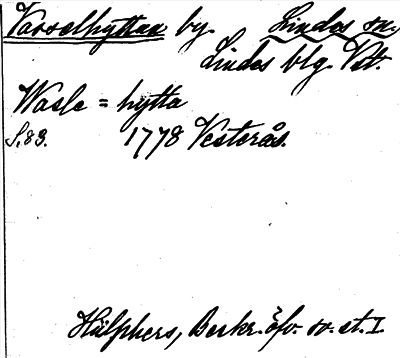 Vasselhyttan by. Lindes sn.,
Lindes blg. Vst.
Wasle = hytta
S. 89. 1778 Vesterås.
Hülphers, Beskr. öfv. sv. st. I.